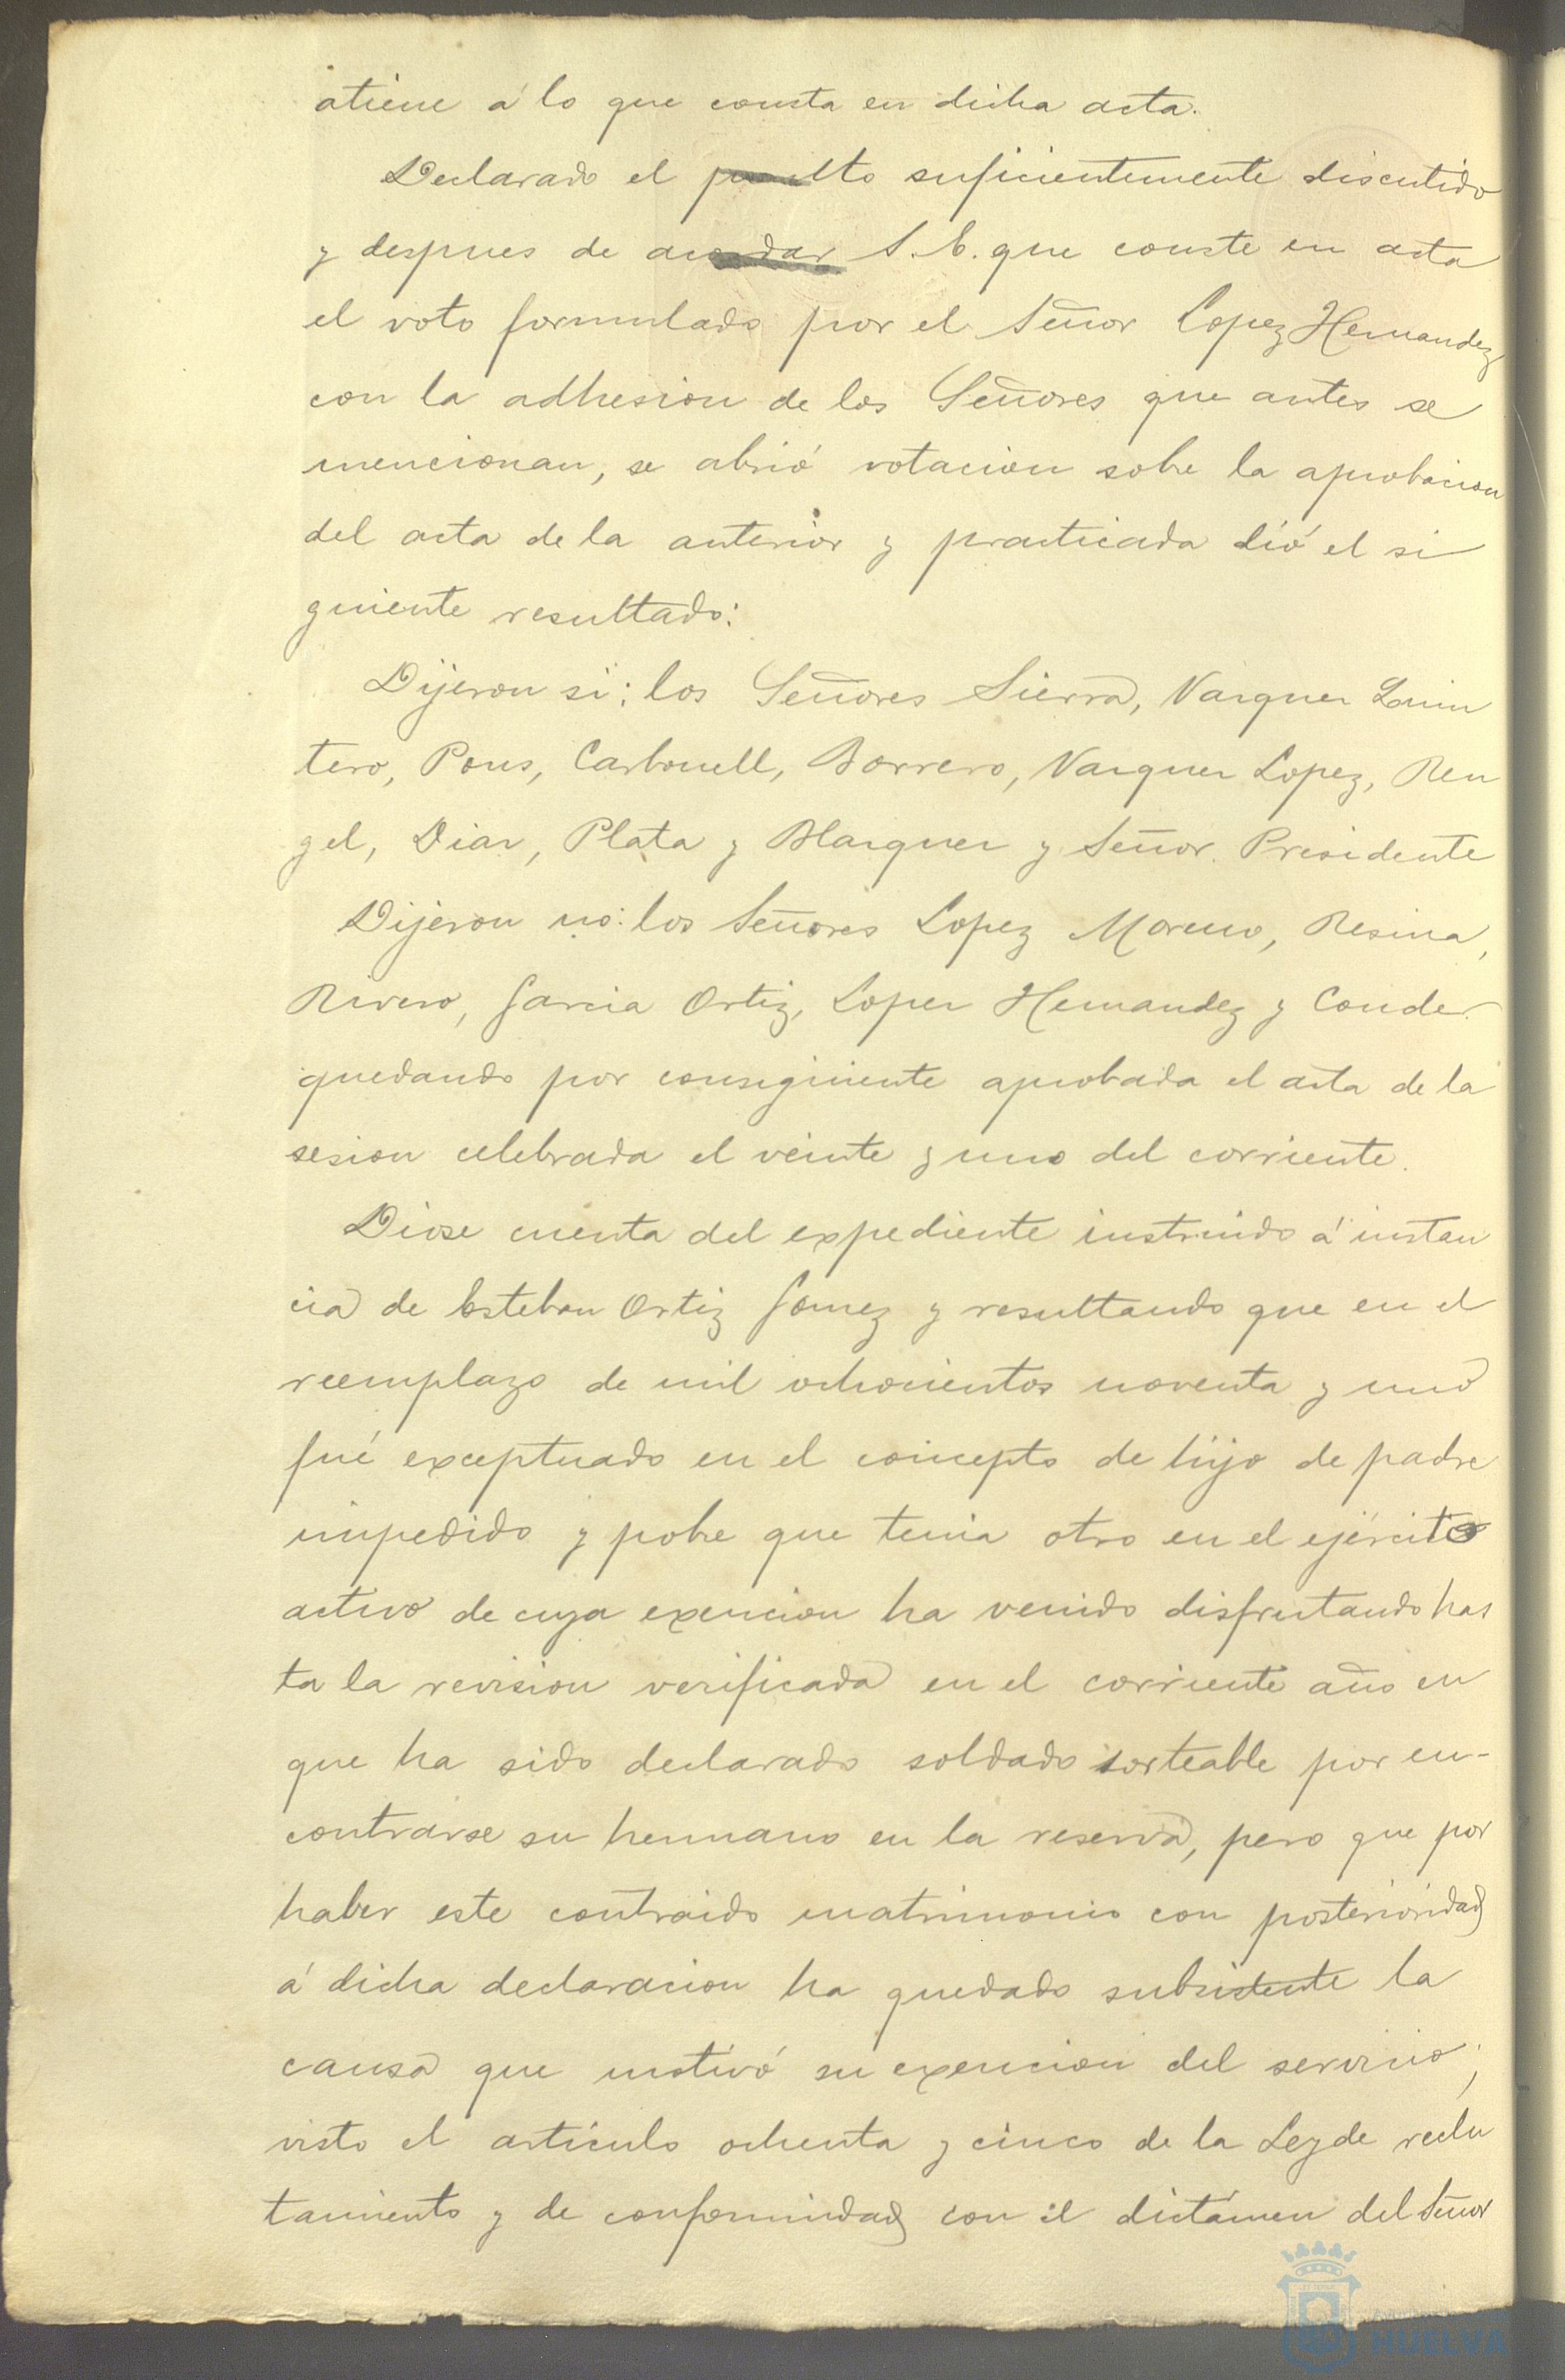 atiene á lo que consta en dicha acta.
Declarado el punto suficientemente discutido
y despues de acordar S. E. que conste en acta
el voto formulado por el Señor Lopez Hernandez
con la adhesion de los Señores que antes se
mencionan, se abrió votacion sobre la aprobacion
del acta de la anterior y practicada dió el si
guiente resultado:
Dijeron si: los Señores Sierra, Vazquez Quin
tero, Pons, Carbonell, Borrero, Vazquez Lopez, Ren
gel, Diaz, Plata y Blazquez y Señor Presidente
Dijeron no: los Señores Lopez Moreno, Resina,
Rivero, Garcia Ortiz, Lopez Hernandez y Conde
quedando por consiguiente aprobada el acta de la
sesion celebrada el veinte y uno del corriente.
Diose cuenta del expediente instruido á instan
cia de Esteban Ortiz Gomez y resultando que en el
reemplazo de mil ochocientos noventa y uno
fué exceptuado en el concepto de hijo de padre
impedido y pobre que tenia otro en el ejército
activo de cuya exencion ha venido disfrutando has
ta la revision verificada en el corriente año en
que ha sido declarado soldado sorteable por en-
contrarse su hermano en la reserva, pero que por
haber este contraido matrimonio con posterioridad
á dicha declaracion ha quedado subsistente la
causa que motivó su exencion del servicio;
visto el artículo ochenta y cinco de la Ley de reclu
tamiento y de conformidad con el dictámen del Señor
HUELVA